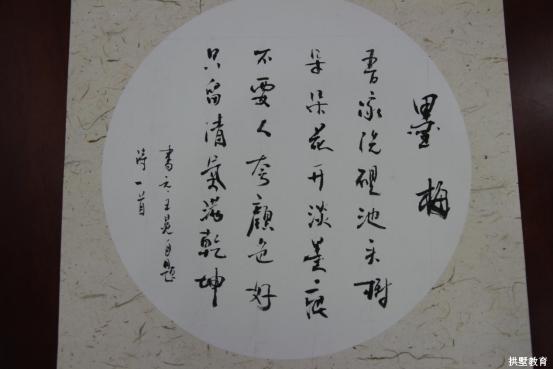 墨梅
吾家洗硯池头樹
朵朵花开淡墨痕
不要人夸顔色好
只留清氣滿乾坤
書元王冕自題
詩一首
拱墅教育